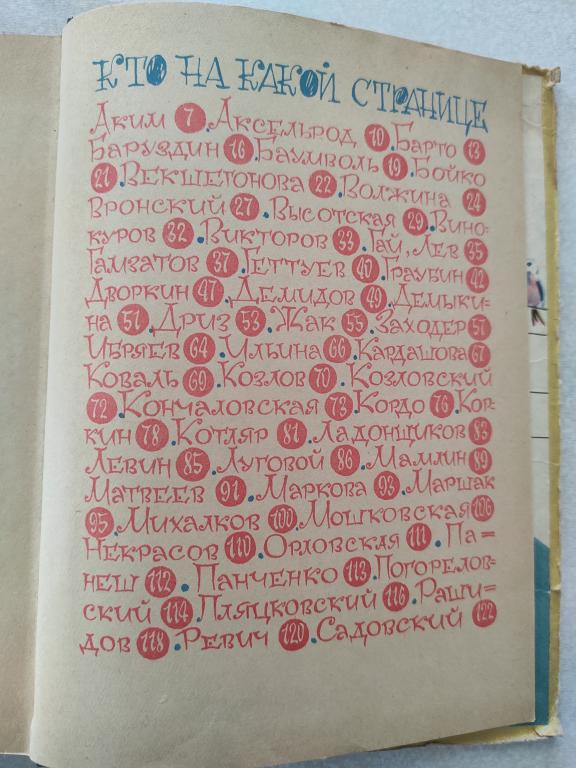 КТО НА КАКОЙ СТРАНИЦЕ
Аким 7 .Аксельрод 10 .Барто 13
Баруздин 16 .Баумволь 19 .Бойко
21 .Векшегонова 22 .Волжина 24
Вронский 27 .Высотская 29 .Вино-
куров 32 .Викторов 33 .Гай, Лев 35
Гамзатов 37 .Геттуев 40 .Граубин 42
Дворкин 47 .Демидов 49 .Демыки-
на 51 .Дриз 53 .Жак 55 .Заходер 57
Ибряев 64 .Ильина 66 .Кардашова 67
Коваль 69 .Козлов 70 .Козловский
72 .Кончаловская 73 .Кордо 76 .Кор-
кин 78 .Котляр 81 .Ладонщиков 83
Левин 85 .Луговой 86 .Мамлин 89
Матвеев 91 .Маркова 93 .Маршак
95 .Михалков 100 .Мошковская 106
Некрасов 110 .Орловская 111 .Па=
неш 112 .Панченко 113 .Погорелов-
ский 114 .Пляцковский 116 .Раши-
дов 118 .Ревич 120 .Садовский 122